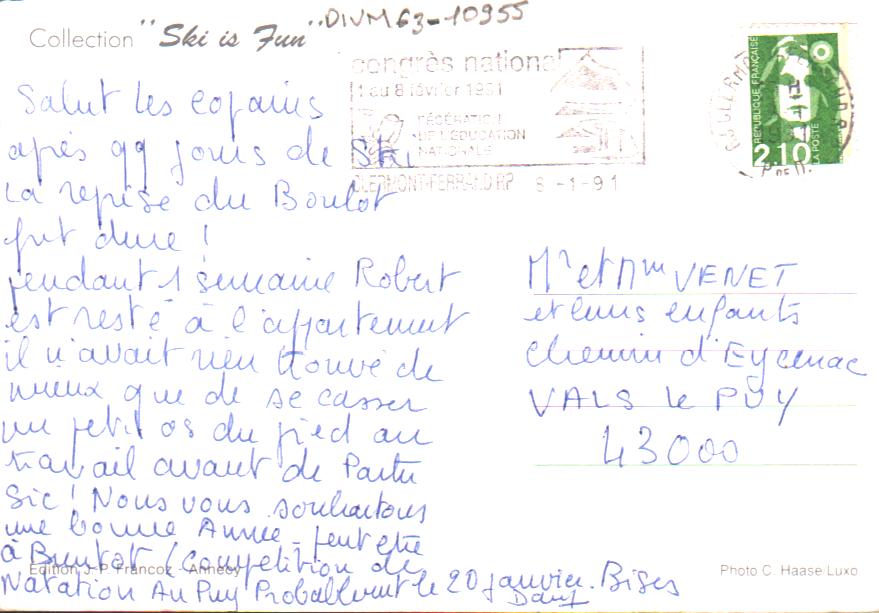 Collection "Ski is Fun"
DIVM63-10955
congrès national
1 au 8 février 1991
FÉDÉRATION
DE L'ÉDUCATION
NATIONALE
CLERMONT-FERRAND RP 8-1-91
RÉPUBLIQUE FRANÇAISE
2,10
LA POSTE
Salut les copains
après 99 jours de Ski
La reprise du Boulot
fut dure !
pendant 1 semaine Robert
est resté à l'appartement
il n'avait rien trouvé de
mieux que de se casser
un petit os du pied au
travail avant de Partir
Sic ! Nous vous souhaitons
une bonne Année - peut etre
à Bientot (Competition de
Natation Au Puy Probablement le 20 janvier. Bises
Mr et Mme VENET
et leurs enfants
Chemin d'Eycenac
VALS le PUY
43000
Edition J.-P. Francoz - Annecy
Photo C. Haase/Luxo